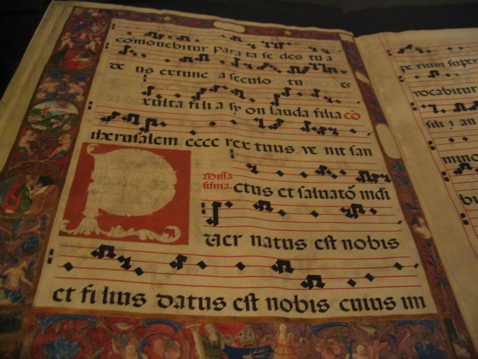 comovebitur Para ta se des tu a
de us ex tunc a seculo tu
exulta filia syon lauda filia
iherusalem ecce rex tuus ve nit san
Missa
ctus et salvatō mdi
Puer natus est nobis
et filius datus est nobis cuius im
pe rium super
vocabitur
mino